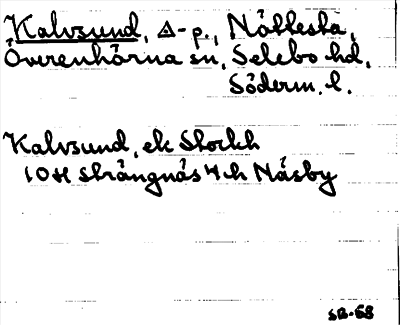 Kalvsund, Δ-p., Nällesta,
Överenhörna sn, Selebo hd,
Söderm. l.
Kalvsund, ek Stockh
10H Strängnäs 4h Näsby
SB-68